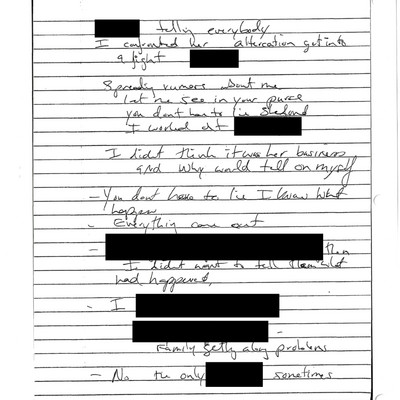 telling everybody
I confronted her altercation get into
a fight
Spreading rumors about me
Let me see in your purse
you dont have to lie
I worked at
I didnt think it was her business
and why would tell on myself
- You dont have to lie I know what
happen
- Everything come out
- then
I didnt want to tell them what
had happened,
- I
-
Family getting along problems
- No the only sometimes